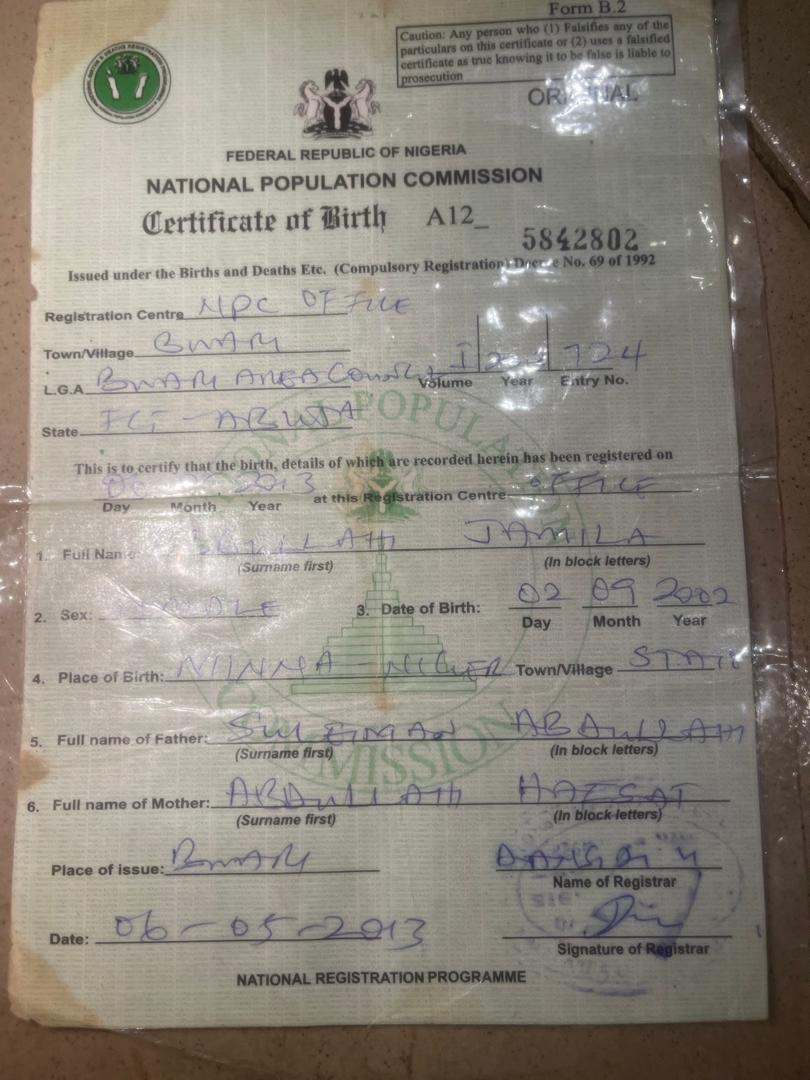 Form B.2
Caution: Any person who (1) Falsifies any of the
particulars on this certificate or (2) uses a falsified
certificate as true knowing it to be false is liable to
prosecution
ORIGINAL
FEDERAL REPUBLIC OF NIGERIA
NATIONAL POPULATION COMMISSION
Certificate of Birth A12_ 5842802
Issued under the Births and Deaths Etc. (Compulsory Registration) Decree No. 69 of 1992
Registration Centre NPC OFFICE
Town/Village BWARI
L.G.A BWARI AREA COUNCIL Volume I Year Entry No. 724
State FCT - ABUJA
This is to certify that the birth, details of which are recorded herein has been registered on
06 2013 at this Registration Centre OFFICE
Day Month Year
1. Full Name: ABDULLAHI JAMILA
(Surname first) (In block letters)
2. Sex: FEMALE 3. Date of Birth: 02 09 2002
Day Month Year
4. Place of Birth: MINNA - NIGER Town/Village STATE
5. Full name of Father: SULEIMAN ABDULLAHI
(Surname first) (In block letters)
6. Full name of Mother: ABDULLAHI HAFSAT
(Surname first) (In block letters)
Place of issue: BWARI
Name of Registrar
Date: 06-05-2013
Signature of Registrar
NATIONAL REGISTRATION PROGRAMME
NATIONAL POPULATION COMMISSION